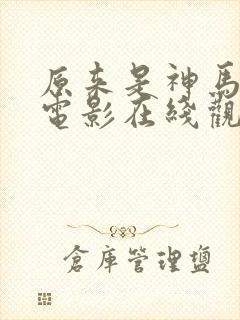 原来是神馬
電影在綫觀
倉庫管理鹽